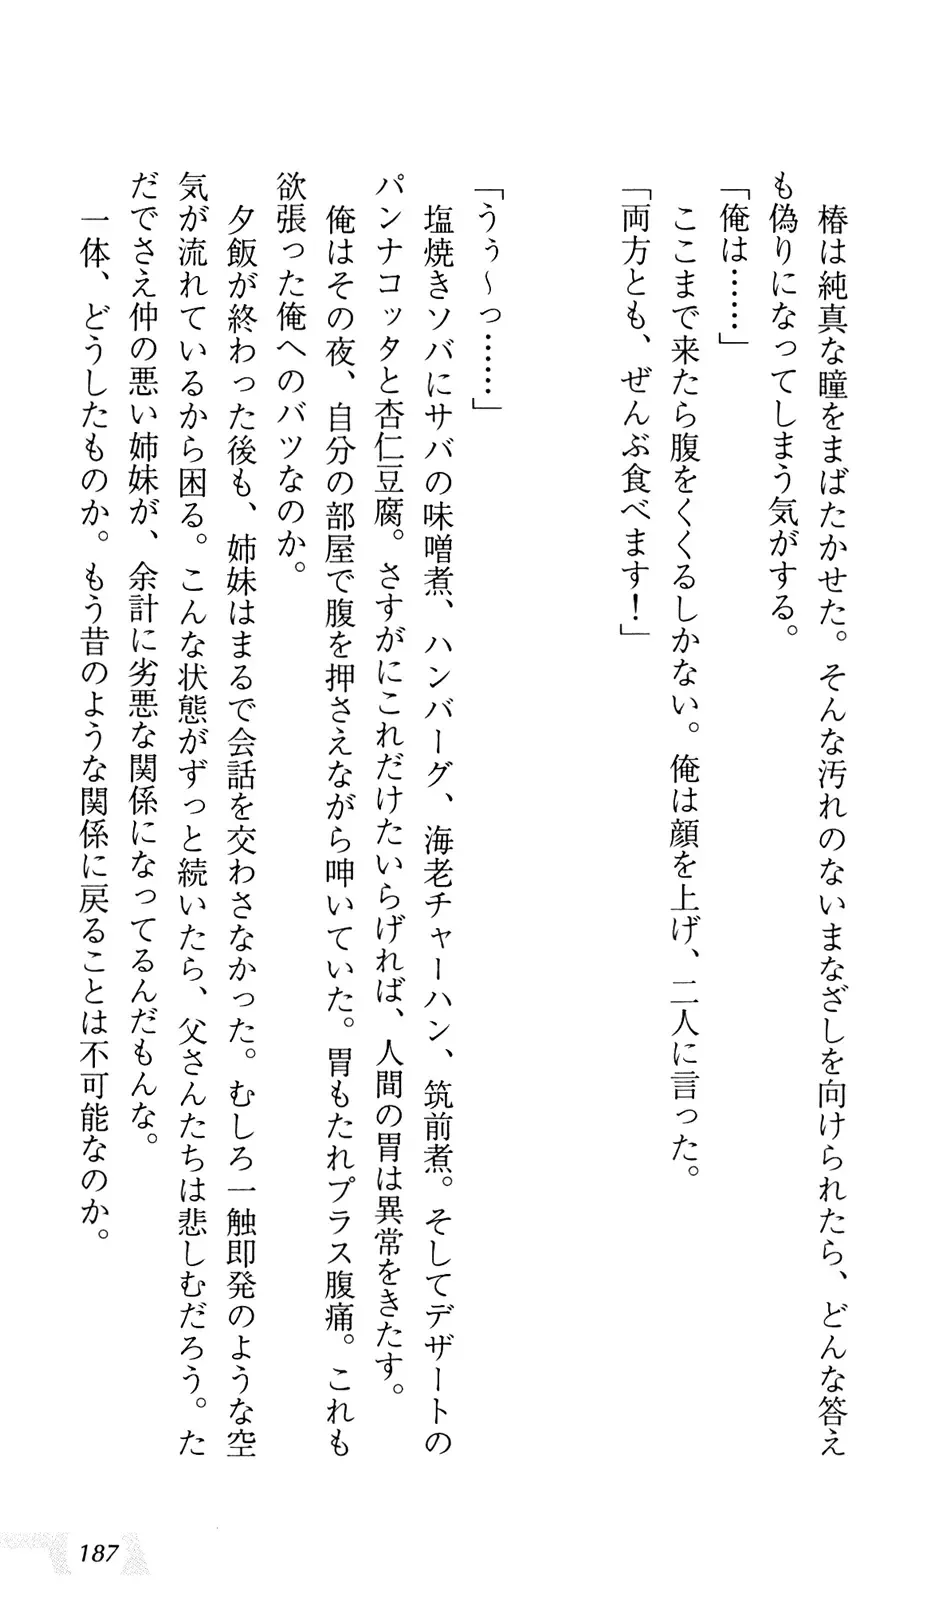 椿は純真な瞳をまばたかせた。そんな汚れのないまなざしを向けられたら、どんな答え
も偽りになってしまう気がする。
「俺は……」
ここまで来たら腹をくくるしかない。俺は顔を上げ、二人に言った。
「両方とも、ぜんぶ食べます！」
「うぅ～っ……」
塩焼きソバにサバの味噌煮、ハンバーグ、海老チャーハン、筑前煮。そしてデザートの
パンナコッタと杏仁豆腐。さすがにこれだけたいらげれば、人間の胃は異常をきたす。
俺はその夜、自分の部屋で腹を押さえながら呻いていた。胃もたれプラス腹痛。これも
欲張った俺へのバツなのか。
夕飯が終わった後も、姉妹はまるで会話を交わさなかった。むしろ一触即発のような空
気が流れているから困る。こんな状態がずっと続いたら、父さんたちは悲しむだろう。た
だでさえ仲の悪い姉妹が、余計に劣悪な関係になってるんだもんな。
一体、どうしたものか。もう昔のような関係に戻ることは不可能なのか。
187